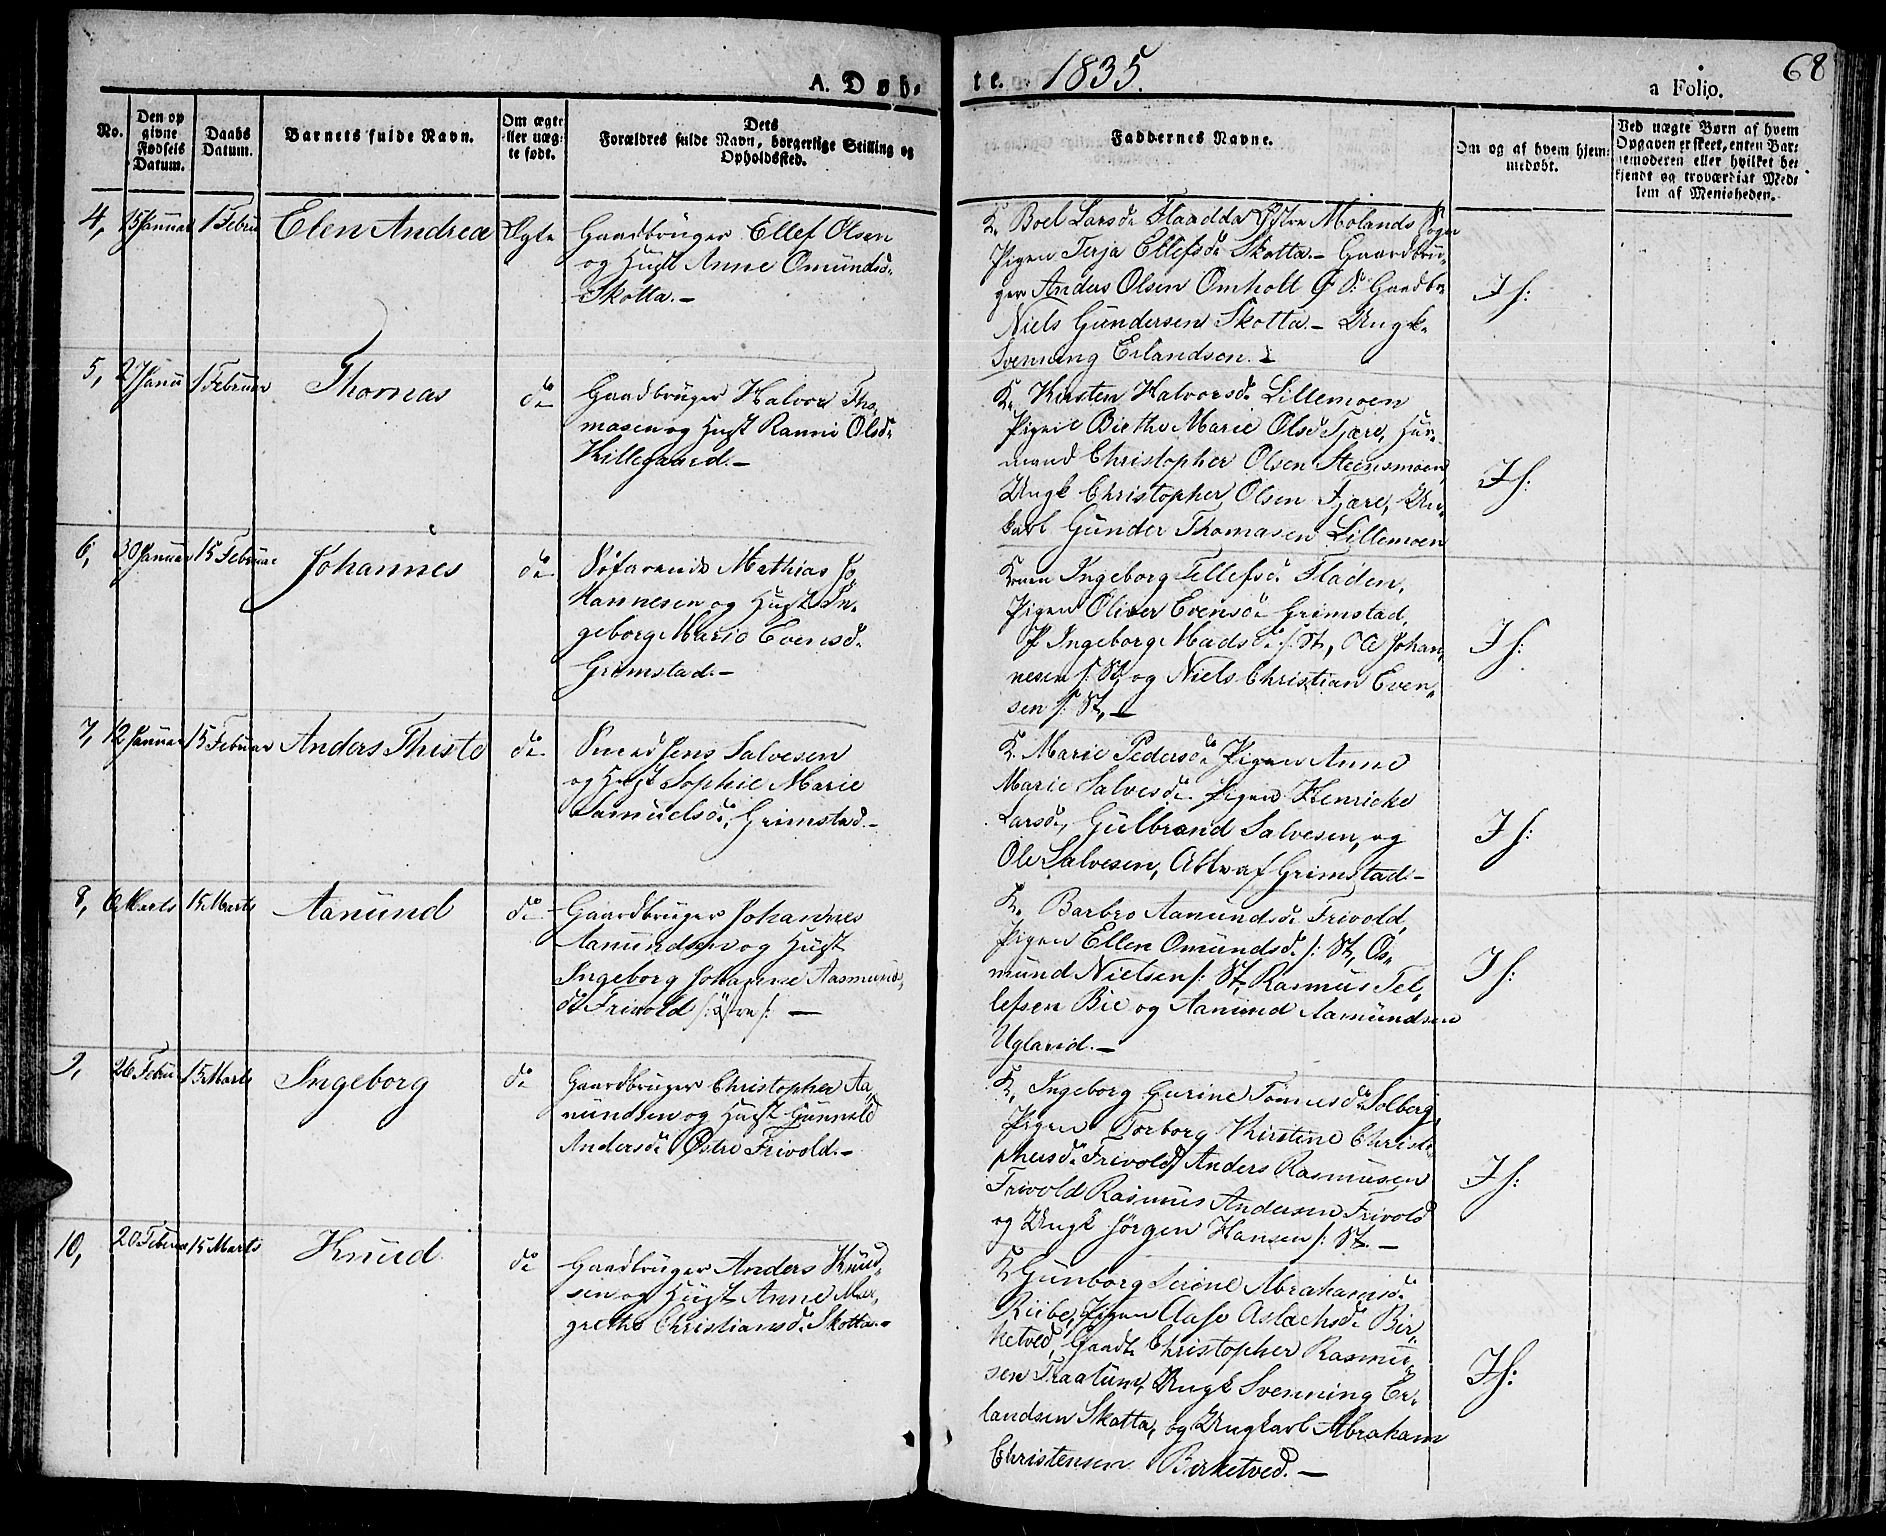 A. Døb-
te. 1835.
a Folio. 68
No.
Den op
givne
Fødsels
Datum.
Daabs
Datum.
Barnets fulde Navn.
Om ægte
eller uæg-
te født.
Dets
Forældres fulde Navn, borgerlige Stilling og
Opholdssted.
Faddernes Navne.
Om og af hvem hjem-
medøbt.
Ved uægte Børn af hvem
Opgaven er skeet, enten Bar-
nemoderen eller hvilket be-
kjendt og troværdigt Med-
lem af Menigheden.
4, 15 Januar 1 Febru Elen Andrea Ægte
Gaardbruger Ellef Olsen
og Hust Anne Omundsd.
Skotta.-
K. Boel Larsd. Flaadda Østre Molands Sogn
Pigen Terja Ellefsd. Skotta.- Gaardbru-
ger Anders Olsen Omholt Gaardbr
Niels Gundersen Skotta.- Ungk.
Svenning Erlandsen.-
If:
5, 27 Janu 1 Februar Thomas do
Gaardbruger Halvor Tho-
masen og Hust Ranni Olsd.
Killegaard.-
K. Kirsten Halvorsd. Lillemoen
Pigen Birthe Marie Olsd Fjære, Huus-
mand Christopher Olsen Steensmoen,
Ungk Christopher Olsen Fjære, Un-
karl Gunder Thomasen Lillemoen
If:
6, 30 Januar 15 Februar Johannes do
Søfarende Mathias Jo-
hannesen og Hust In-
geborg Marie Evensd.
Grimstad.-
Konen Ingeborg Tellefsd. Fladen,
Pigen Oliver Evensd Grimstad,
P Ingeborg Madsd. /: St, Ole Johan-
nesen /: St, og Niels Christian Even-
sen /: St,-
If:
7, 12 Januar 15 Februar Anders Thiste do
Smed Jens Salvesen
og Hust Sophie Marie
Samuelsd., Grimstad.-
K. Marie Pedersd. Pigen Anne
Marie Salvesd. Pigen Henricke
Larsd., Gulbrand Salvesen, og
Ole Salvesen, Alle af Grimstad.-
If:
8, 6 Marts 15 Marts Aanund do
Gaardbruger Johannes
Aanundsen og Hust
Ingeborg Johanne Aasmunds-
d. Frivold /: Østre /: -
K. Barbro Aanundsd. Frivold,
Pigen Ellen Omundsd. /: St, Os-
mund Nielsen /: St, Rasmus Tel-
lefsen Bie og Aanund Aamundsen
Ugland.-
If:
9, 26 Febru 15 Marts Ingeborg do
Gaardbruger Christopher Aa-
nundsen og Hust Gunnild
Andersd. Østre Frivold.-
K. Ingeborg Gurine Tønnesd. Solberg,
Pigen Torborg Kirstine Christo-
phersd. Frivold, Anders Rasmusen
Frivold Rasmus Andersen Frivold
og Ungk Jørgen Hansen /: St.-
If:
10, 20 Februa 15 Marts Knud do
Gaardbruger Anders Knud-
sen og Hust Anne Mar-
grethe Christiansd. Skotta.-
K Gunborg Serine Abrahamsd.
Riibe, Pigen Aase Aslachsd. Bir-
ketved, Gaardb. Christopher Rasmu-
sen Traatum, Ungk Svenning Er-
landsen Skotta, og Ungkarl Abraham
Christensen Birketved.-
If: